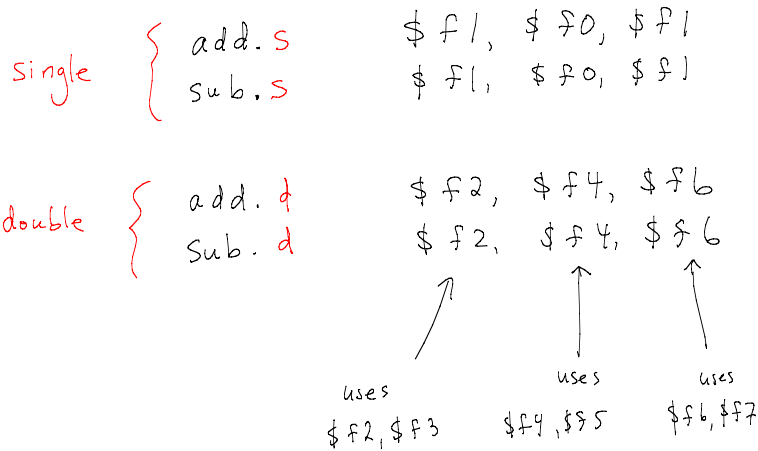 single
add.s $f1, $f0, $f1
sub.s $f1, $f0, $f1
double
add.d $f2, $f4, $f6
sub.d $f2, $f4, $f6
uses uses uses
$f2,$f3 $f4,$f5 $f6,$f7